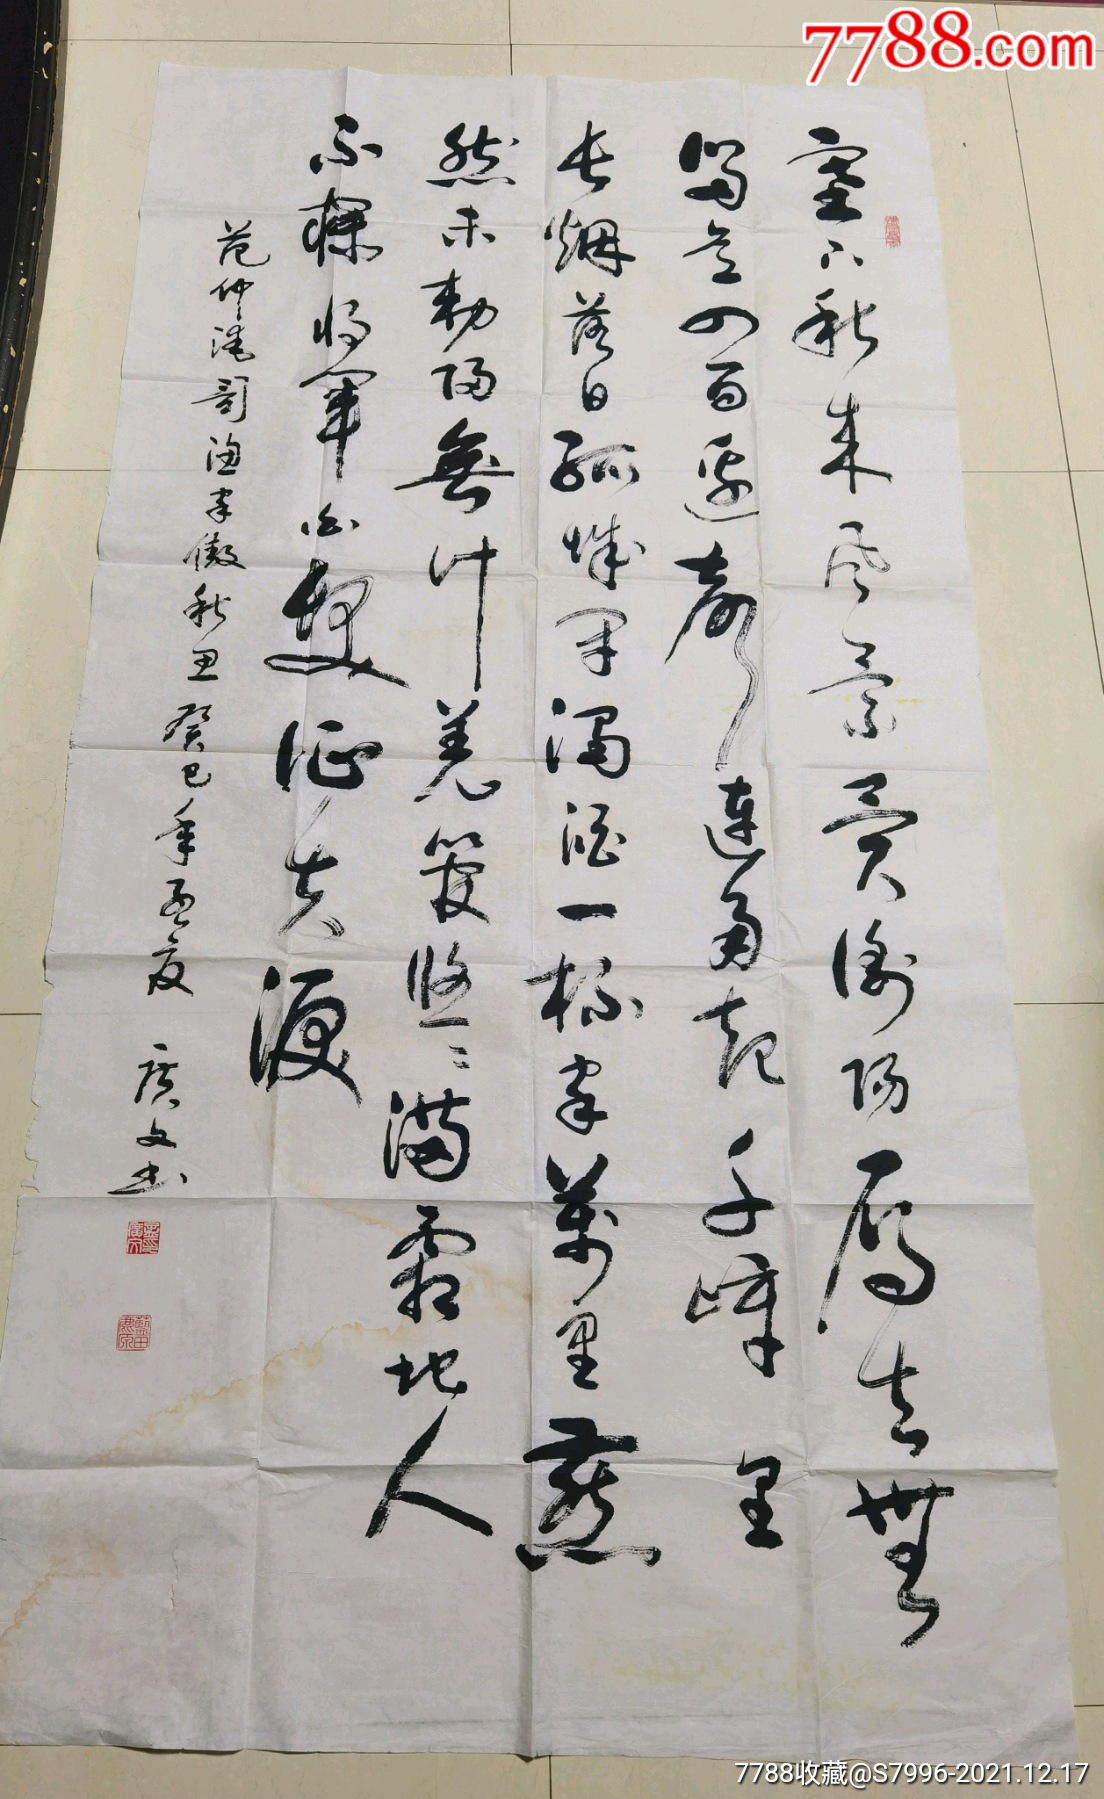 7788.com
塞下秋来风景異衡阳雁去無
留意四面边声连角起千嶂里
长烟落日孤城闭濁酒一杯家萬里燕
然未勒归無计羌管悠〻满霜地人
不寐将军白髮征夫淚
范仲淹词渔家傲秋思癸巳年孟夏 广文书
7788收藏@S7996-2021.12.17